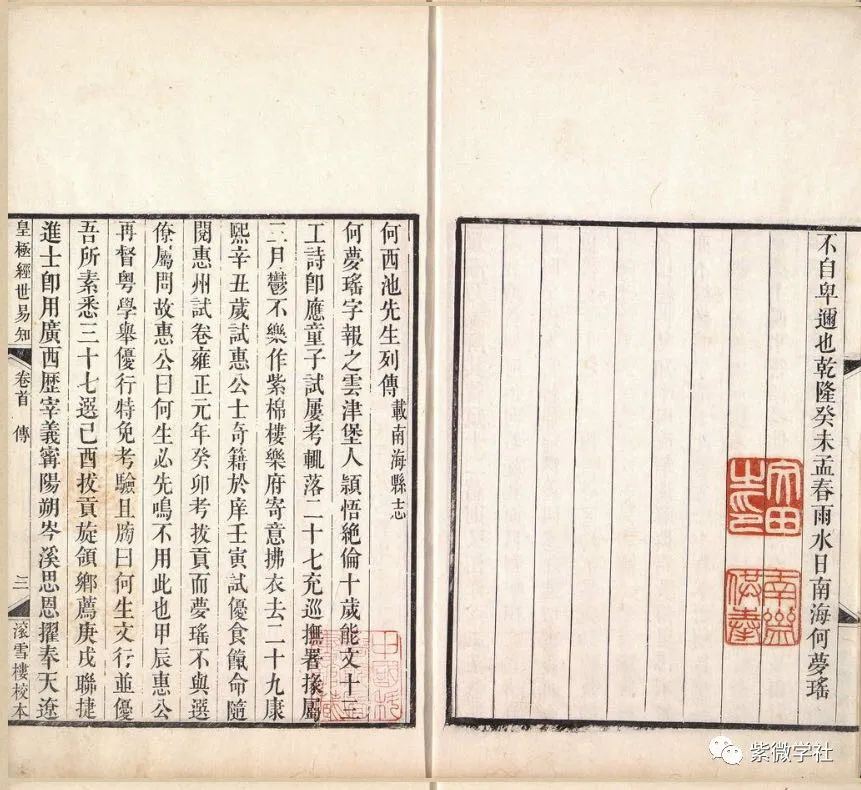 不自卑邇也乾隆癸未孟春雨水日南海何夢瑤
何西池先生列傳 載南海縣志
何夢瑤字報之雲津堡人穎悟絕倫十歲能文十三
工詩卽應童子試屢考輒落二十七充巡撫署掾屬
三月鬱不樂作紫棉樓樂府寄意拂衣去二十九康
熙辛丑歲試惠公士奇籍於庠壬寅試優食餼命隨
閱惠州試卷雍正元年癸卯考拔貢而夢瑤不與選
僚屬問故惠公曰何生必先鳴不用此也甲辰惠公
再督粵學舉優行特免考驗且牓曰何生文行並優
吾所素悉三十七選己酉拔貢旋領鄉薦庚戌聯捷
進士卽用廣西歷宰義寧陽朔岑溪思恩擢奉天遼
皇極經世易知
卷首 傳
三
滾雪樓校本
紫微学社